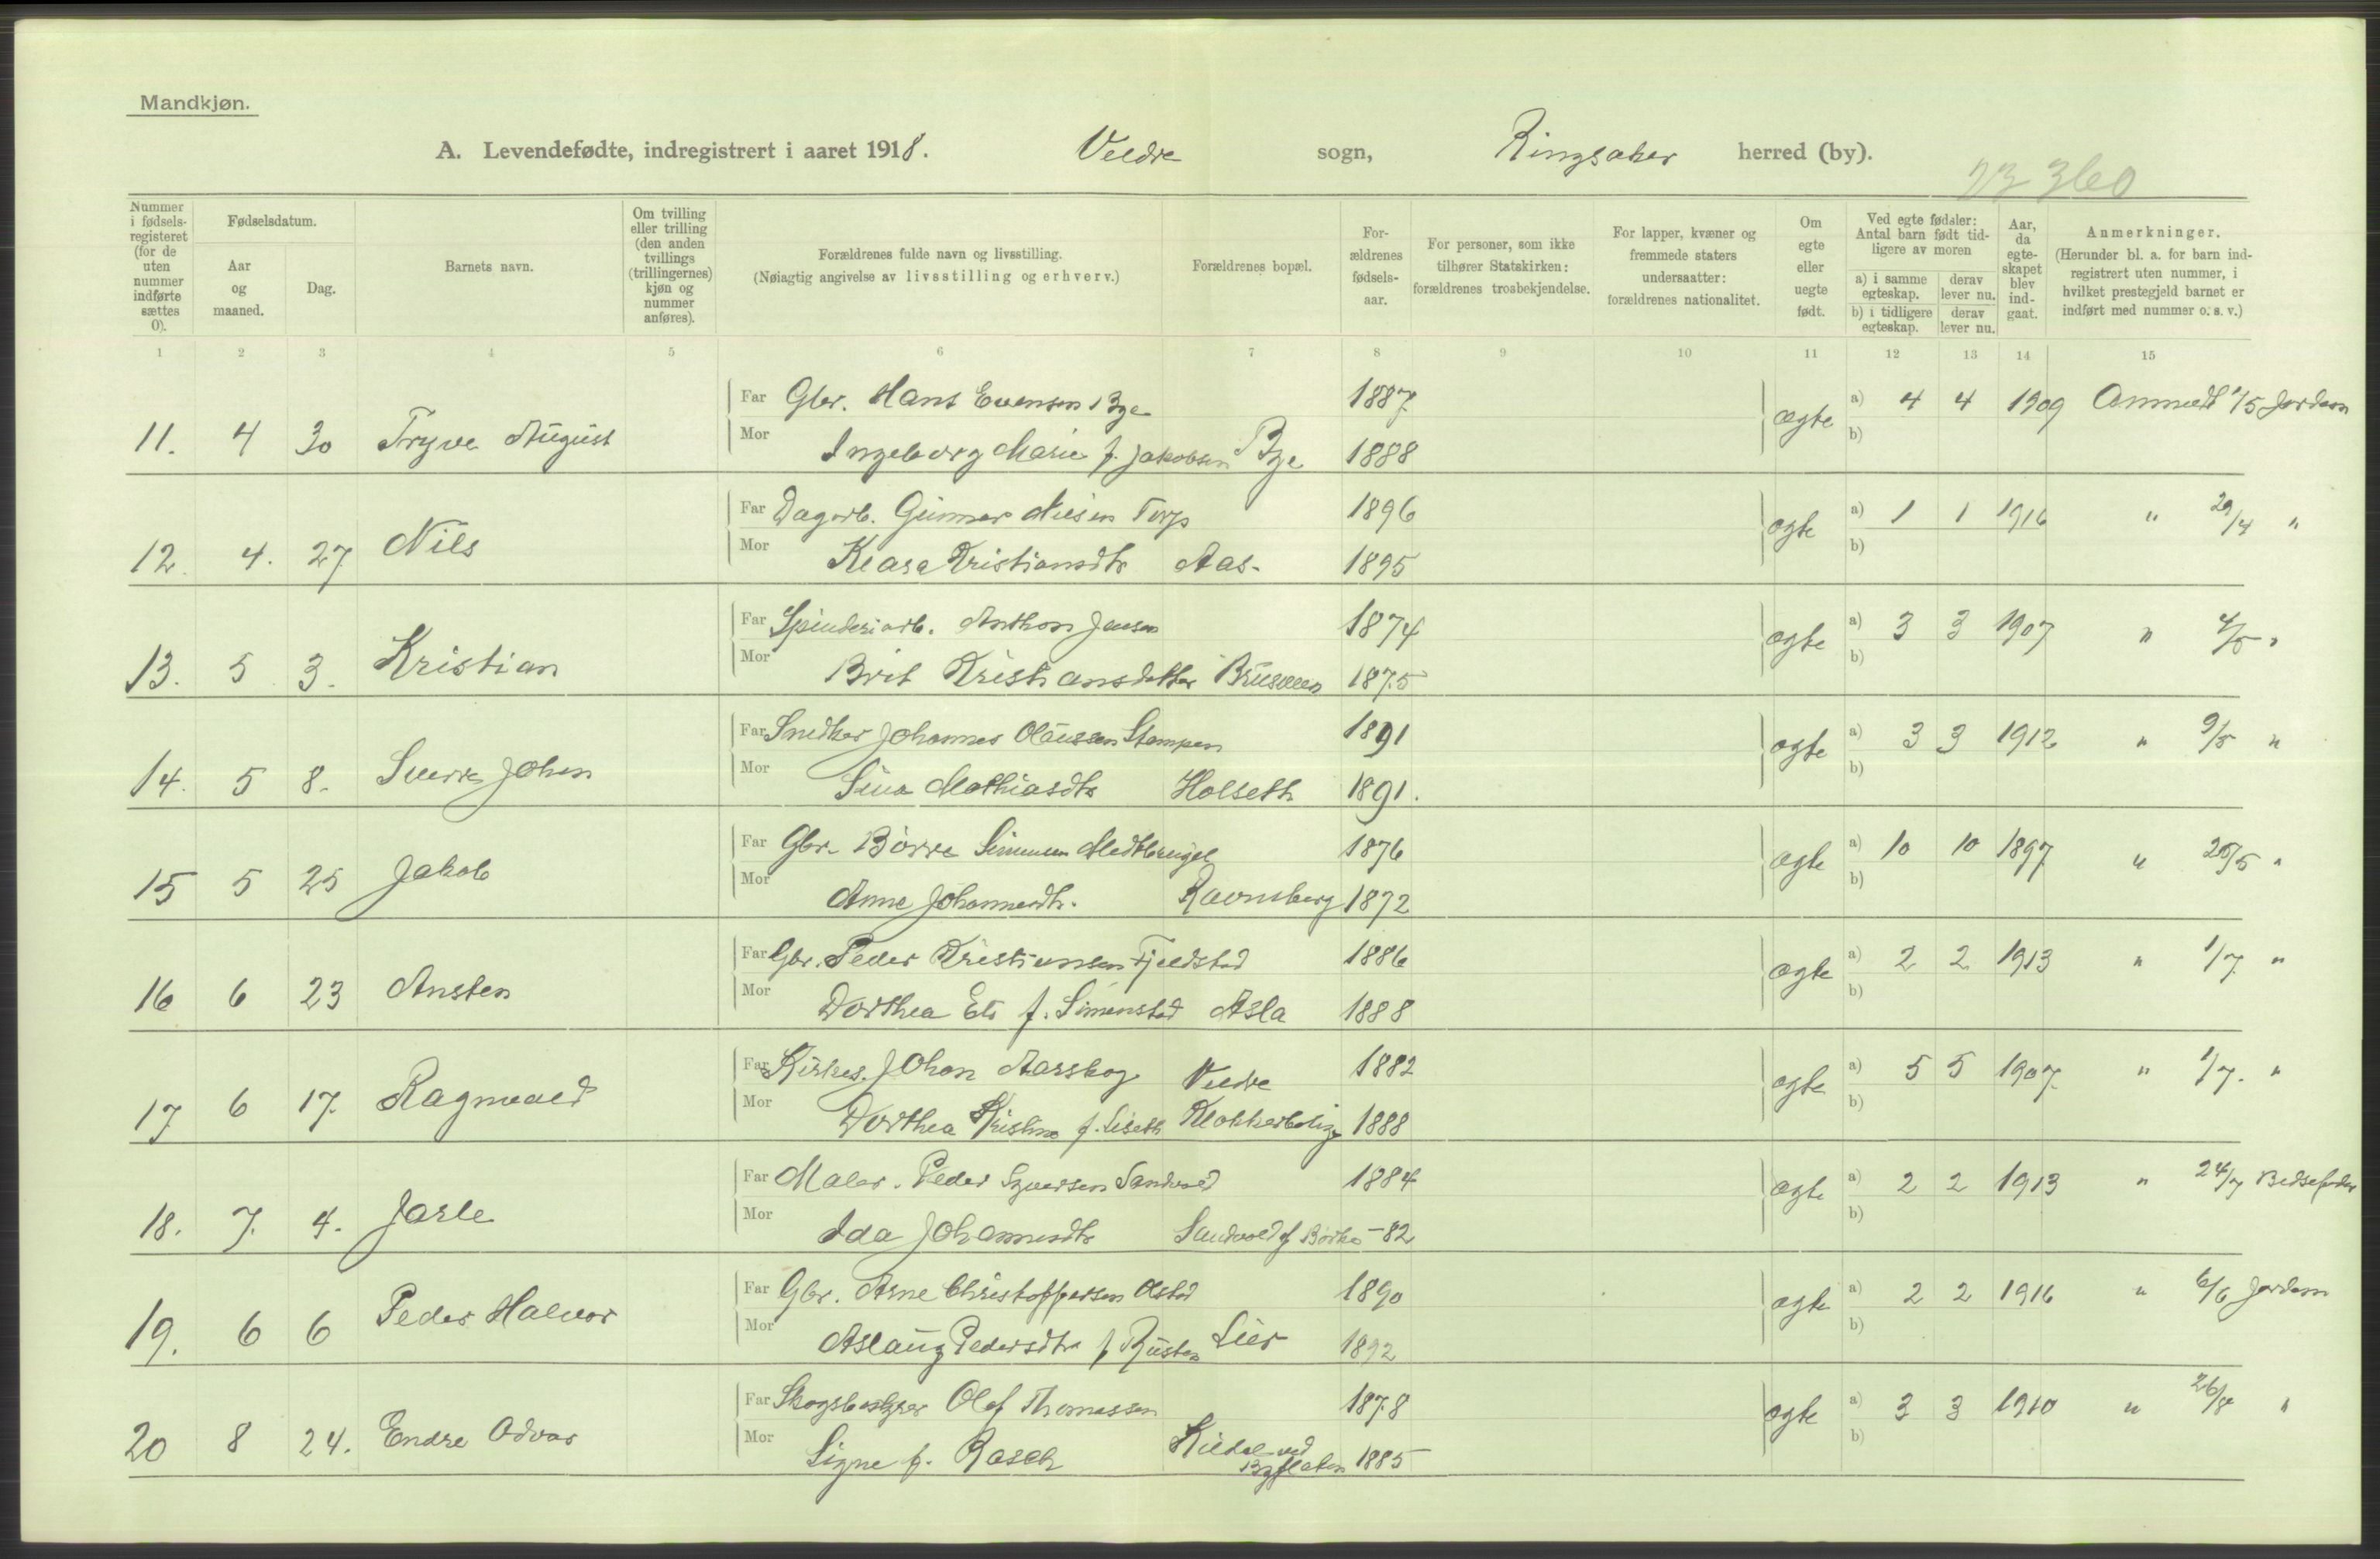 Mandkjøn.
A. Levendefødte, indregistrert i aaret 1918. Veldre sogn, Ringsaker herred (by).
23 360
Nummer i fødsels-registeret (for de uten nummer indførte sættes 0).
Fødselsdatum.
Aar og maaned.
Dag.
Barnets navn.
Om tvilling eller trilling (den anden tvillings (trillingernes) kjøn og nummer anføres).
Forældrenes fulde navn og livsstilling.
(Nøiagtig angivelse av livsstilling og erhverv.)
Forældrenes bopæl.
For-ældrenes fødsels-aar.
For personer, som ikke tilhører Statskirken: forældrenes trosbekjendelse.
For lapper, kvæner og fremmede staters undersaatter: forældrenes nationalitet.
Om egte eller uegte født.
Ved egte fødsler: Antal barn født tid-ligere av moren
a) i samme egteskap. derav lever nu.
b) i tidligere egteskap. derav lever nu.
Aar, da egte-skapet blev ind-gaat.
Anmerkninger.
(Herunder bl. a. for barn ind-registrert uten nummer, i hvilket prestegjeld barnet er indført med nummer o. s. v.)
1 2 3 4 5 6 7 8 9 10 11 12 13 14 15
Far Gbr. Hans Evensen Bye 1887 ægte a) 4 4 1909 Anmeldt 1/5 Jordem
11. 4 30 Tryve August Mor Ingeborg Marie f. Jakobsen Bye 1888 b)
Far Dagarb. Gunnar Nilsen Torp 1896 ægte a) 1 1 1916 " 29/4 "
12. 4. 27 Nils Mor Klara Kristiansdtr Aas. 1895 b)
Far Spinderiarb. Anthon Jensen 1874 ægte a) 3 3 1907 " 4/5 "
13. 5 3. Kristian Mor Brit Kristiansdatter Bruveen 1875 b)
Far Snedker Johannes Olaussen Stampen 1891 ægte a) 3 3 1912 " 9/5 "
14. 5 8. Sverre Johan Mor Sina Mathiasdtr Holseth 1891. b)
Far Gbr. Børre Simensen 1876 ægte a) 10 10 1897 " 25/5 "
15 5 25 Jakob Mor Anne Johannesdtr. Ravnsberg 1872 b)
Far Gbr. Peder Kristiansen Fjeldstad 1886 ægte a) 2 2 1913 " 1/7 "
16 6 23 Ansten Mor Dorthea Els f. Simenstad Asla 1888 b)
Far Kirkes. Johan Aarskog Veldre 1882 ægte a) 5 5 1907. " 1/7. "
17 6 17. Ragnvald Mor Dorthea Kristine f. Liseth Klokkerbolig 1888 b)
Far Maler. Peder Syversen Sandvold 1884 ægte a) 2 2 1913 " 24/7 Bedstefader
18. 7. 4. Jarle Mor Ida Johannesdtr Sandvold f Børke -82 b)
Far Gbr. Arne Christoffersen Alstad 1890 ægte a) 2 2 1916 " 6/6 Jordem
19. 6 6 Peder Halvor Mor Aslaug Pedersdtr f Rusten Lier 1892 b)
Far Skogsbestyrer Olaf Thomassen 1878 ægte a) 3 3 1910 " 26/8 "
20 8 24. Endre Odvar Mor Signe f. Rasch Kildal ved Byflaten 1885 b)